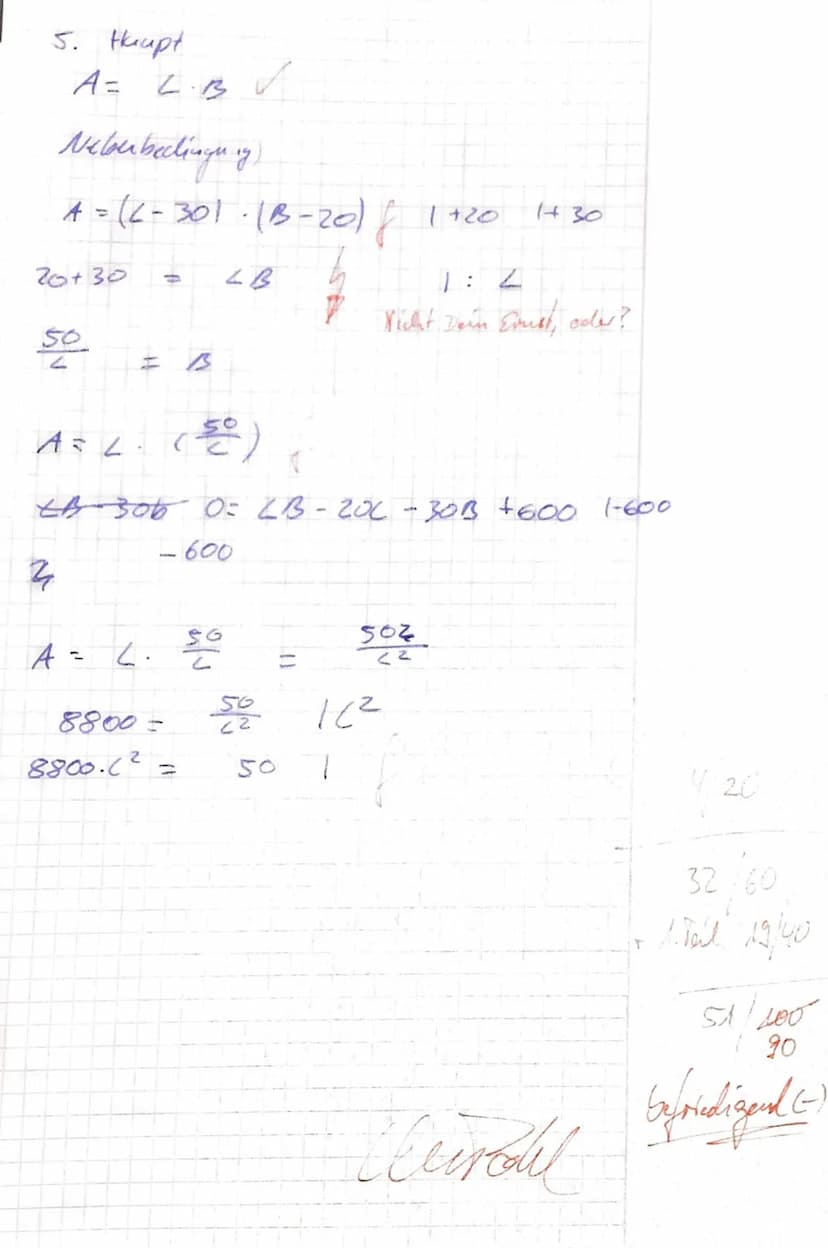 5. Haupt
A = L · B ✓
Nebenbedingung
A = (L - 30) · (B - 20) f | +20 | + 30
20+30 = LB | : L
Nicht Dein Ernst, oder?
50/L = B
A = L · (50/L)
LB - 30b 0 = LB - 20L - 30B + 600 | -600
- 600
A = L · 50/L = 50L/L²
8800 = 50/L² | L²
8800 · L² = 50 | f
4/20
32/60
+ 1. Teil 19/40
51/100
90
befriedigend (-)